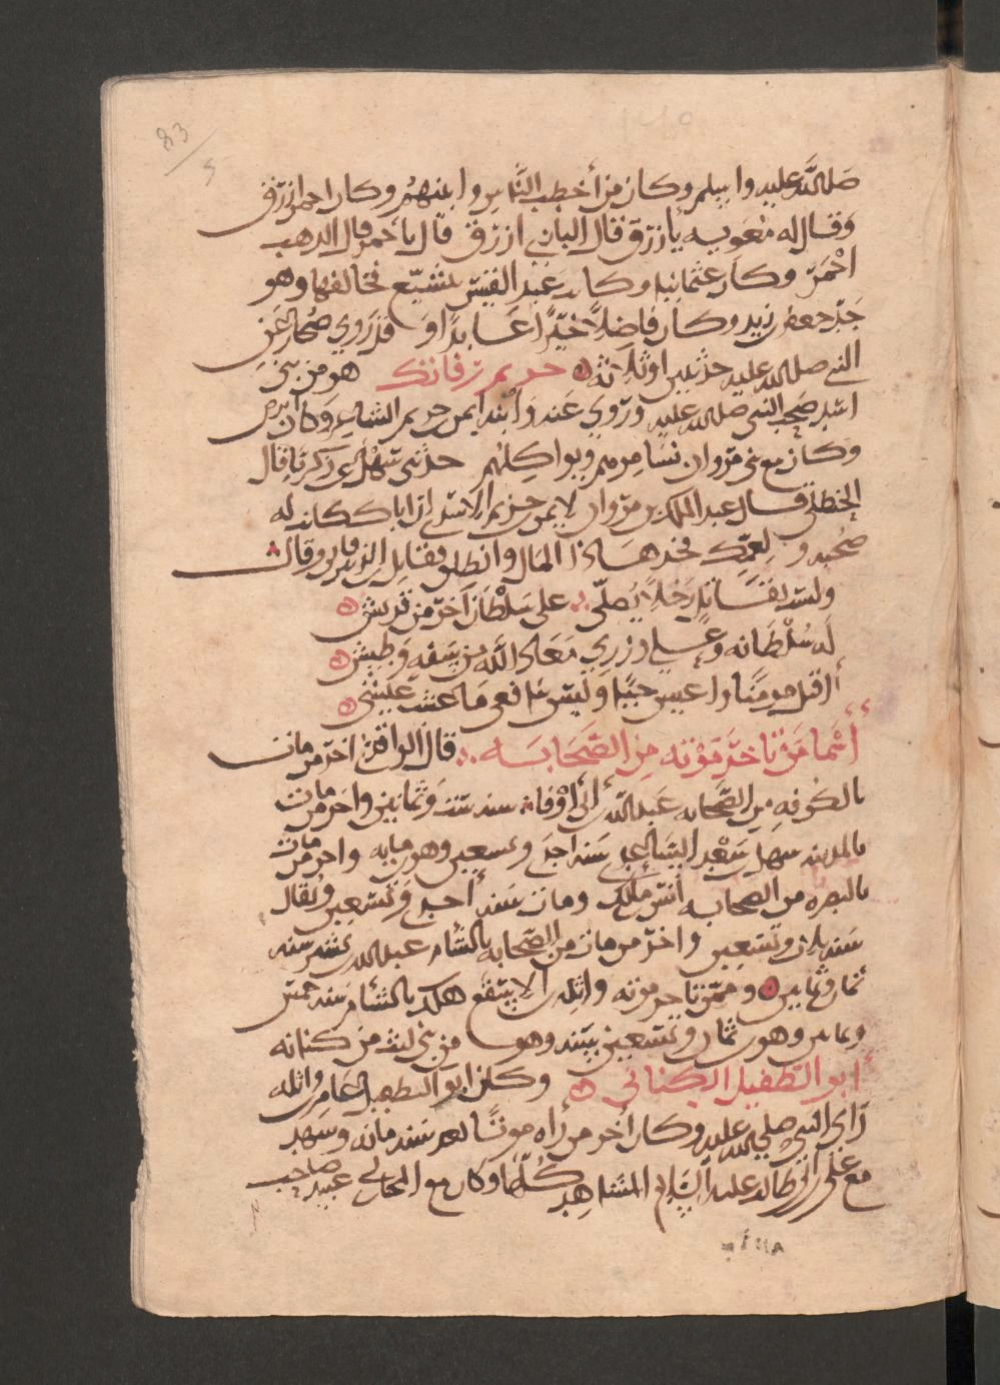 83
صلى الله عليه وا وسلم وكان من أخطب الناس وابينهم وكان احمر ازرق
وقال له معويه يا ازرق قال البازي ازرق قال يا احمر قال الذهب
احمر وكان عثمانيا وكانت عبد القيس تتشيع فخالفها وهو
جد جعفر بن زيد وكان فاضلا خيرا عابدا وقد روي صحار عن
النبي صلى الله عليه حديثين او ثلاثة خريم بن فاتك هو من بني
اسد صحب النبي صلى الله عليه وروي عنه وابنه ايمن بن خريم الشاعر وكان ابرص
وكان مع بني مروان يسامرهم ويواكلهم حدثني سهل عن زكريا قال
قال عبد الملك بن مروان لايمن بن خريم الاسدي ان اباك كانت له
صحبه ولعمك فخذ هذا المال وانطلق فقاتل ابن الزبير فابى وقال
ولست بقاتل رجلا يصلي على سلطان آخر من قريش
له سلطانه وعلي وزري معاذ الله من سفه وطيش
أاقتل مومنا واعيش حيا وليس بنافعي ما عشت عيشي
أسما من تاخر موته من الصحابه قال الواقدي اخر من مات
بالكوفه من الصحابه عبد الله بن أبي أوفا سنه ست وثمانين واخر من مات
بالمدينه سهل بن سعد الساعدي سنه احدى وتسعين وهو بن مايه واخر من مات
بالبصره من الصحابه أنس بن ملك ومات سنه أحدى وتسعين ويقال
سنه ثلاث وتسعين واخر من مات من الصحابه بالشام عبد الله بن بسر سنه
ثمان وثمانين وممن تاخر موته واثله بن الاسقع هلك بالشام سنه خمس
وثمانين وهو بن ثمان وتسعين سنه وهو من بني ليث من كنانه
أبو الطفيل الكناني وكان ابو الطفيل عامر بن واثله
رأى النبي صلى الله عليه وكان أخر من رأه موتا بعد سنه مائه وشهد
مع علي بن أبي طالب عليه السلام المشاهد كلها وكان مع المختار بن ابي عبيد صاحب